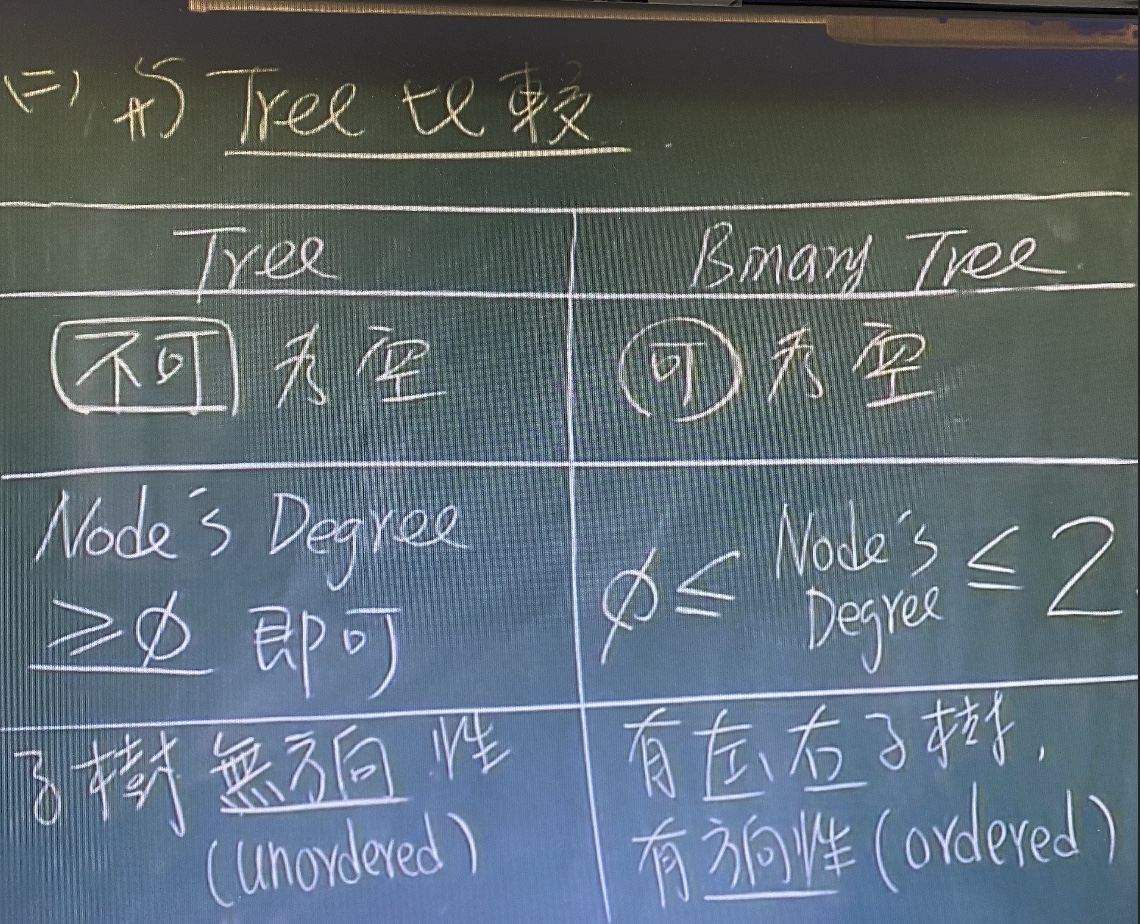 (二) 与 Tree 比較
Tree
Binary Tree
不可 為空
可 為空
Node's Degree
≥ø 即可
ø ≤ Node's Degree ≤ 2
子樹 無方向性
(unordered)
有左右子樹,
有方向性 (ordered)